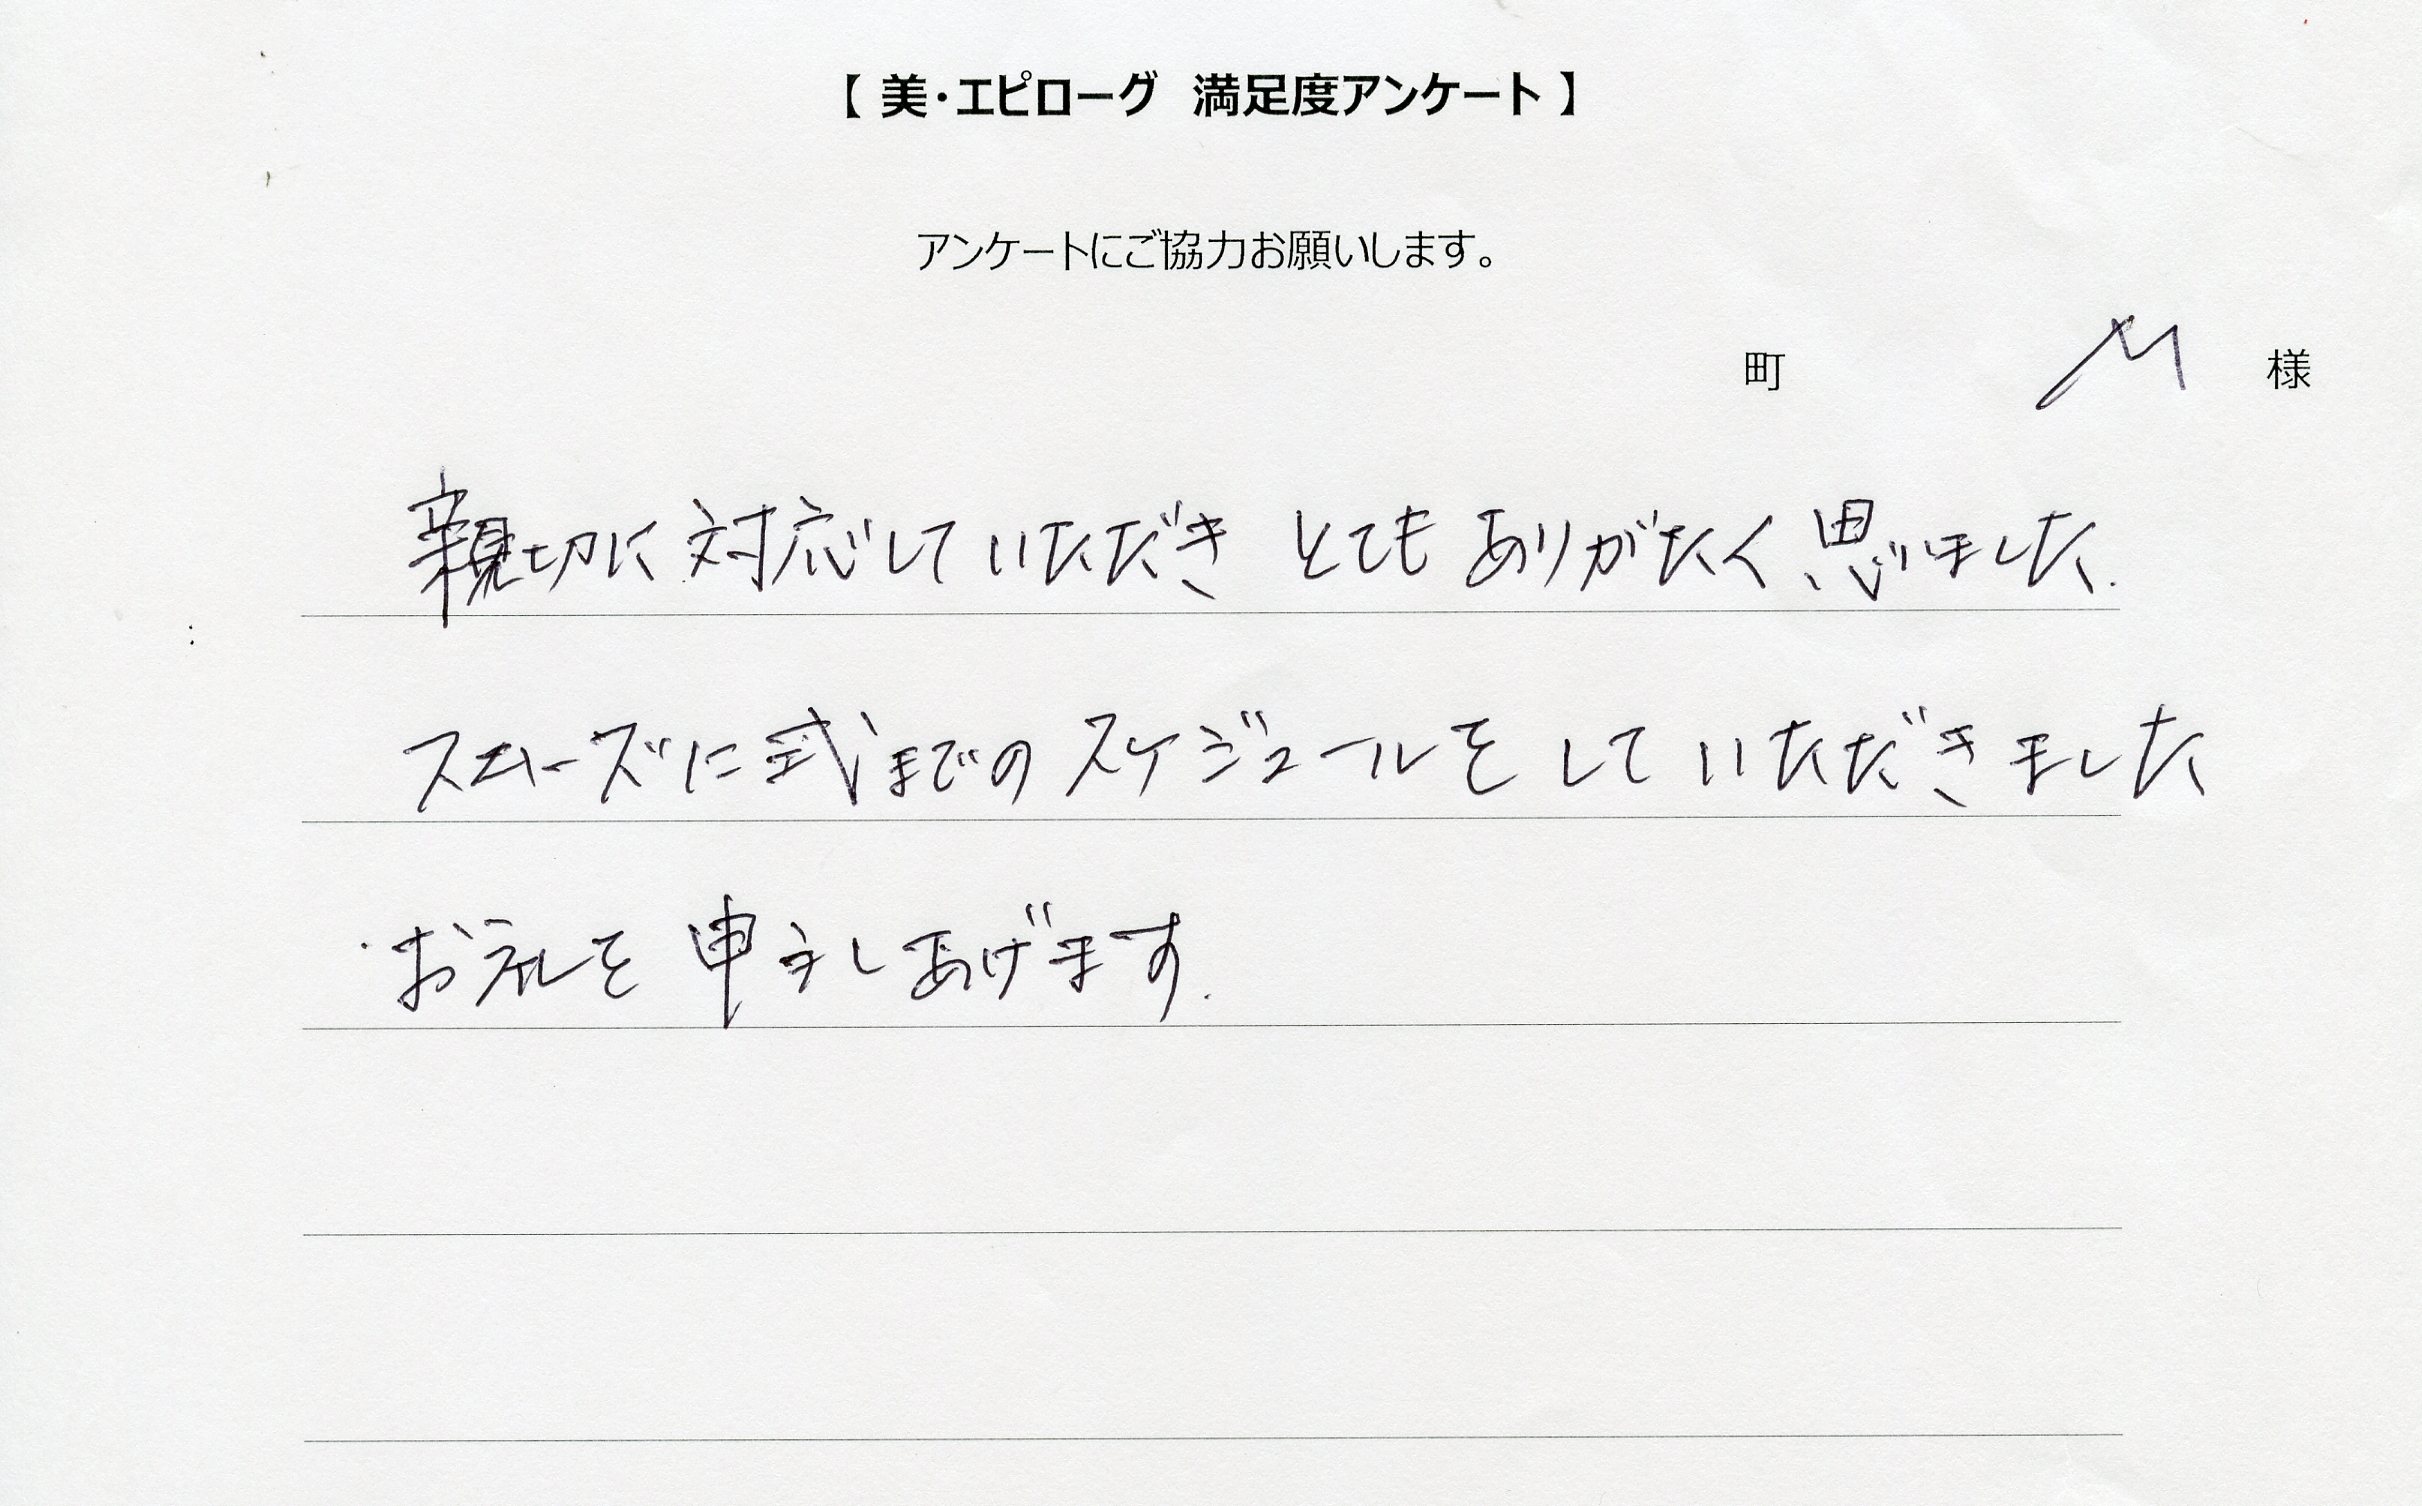 【 美・エピローグ 満足度アンケート 】
アンケートにご協力お願いします。
町 M 様
親切に対応していただき とても ありがたく 思いました.
スムーズに式までの スケジュールを していただきました
お礼を 申しあげます.